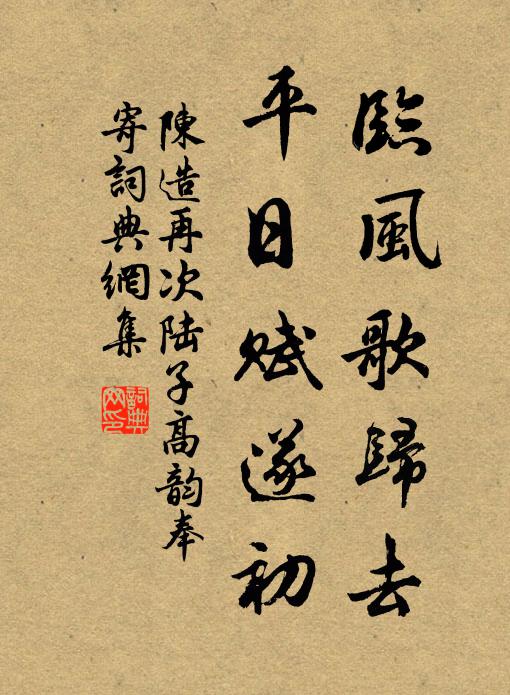 臨風歌歸去
平日賦遂初
陳造再次陸子高韵奉
寄詞典網集
詞典
网印